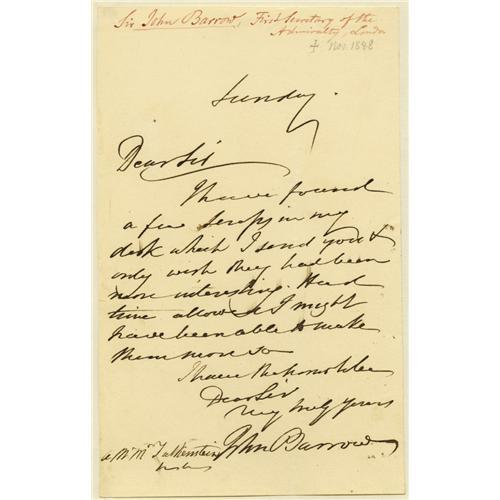 Sir John Barrow, First Secretary of the
Admiralty, London
† Nov. 1848
Sunday.
Dear Sir
I have found
a few scraps in my
desk which I send you &
only wish they had been
more interesting. Had
time allowed I might
have been able to make
them more so
I have the honor to be
Dear Sir
Very truly Yours
John Barrow
a Mr